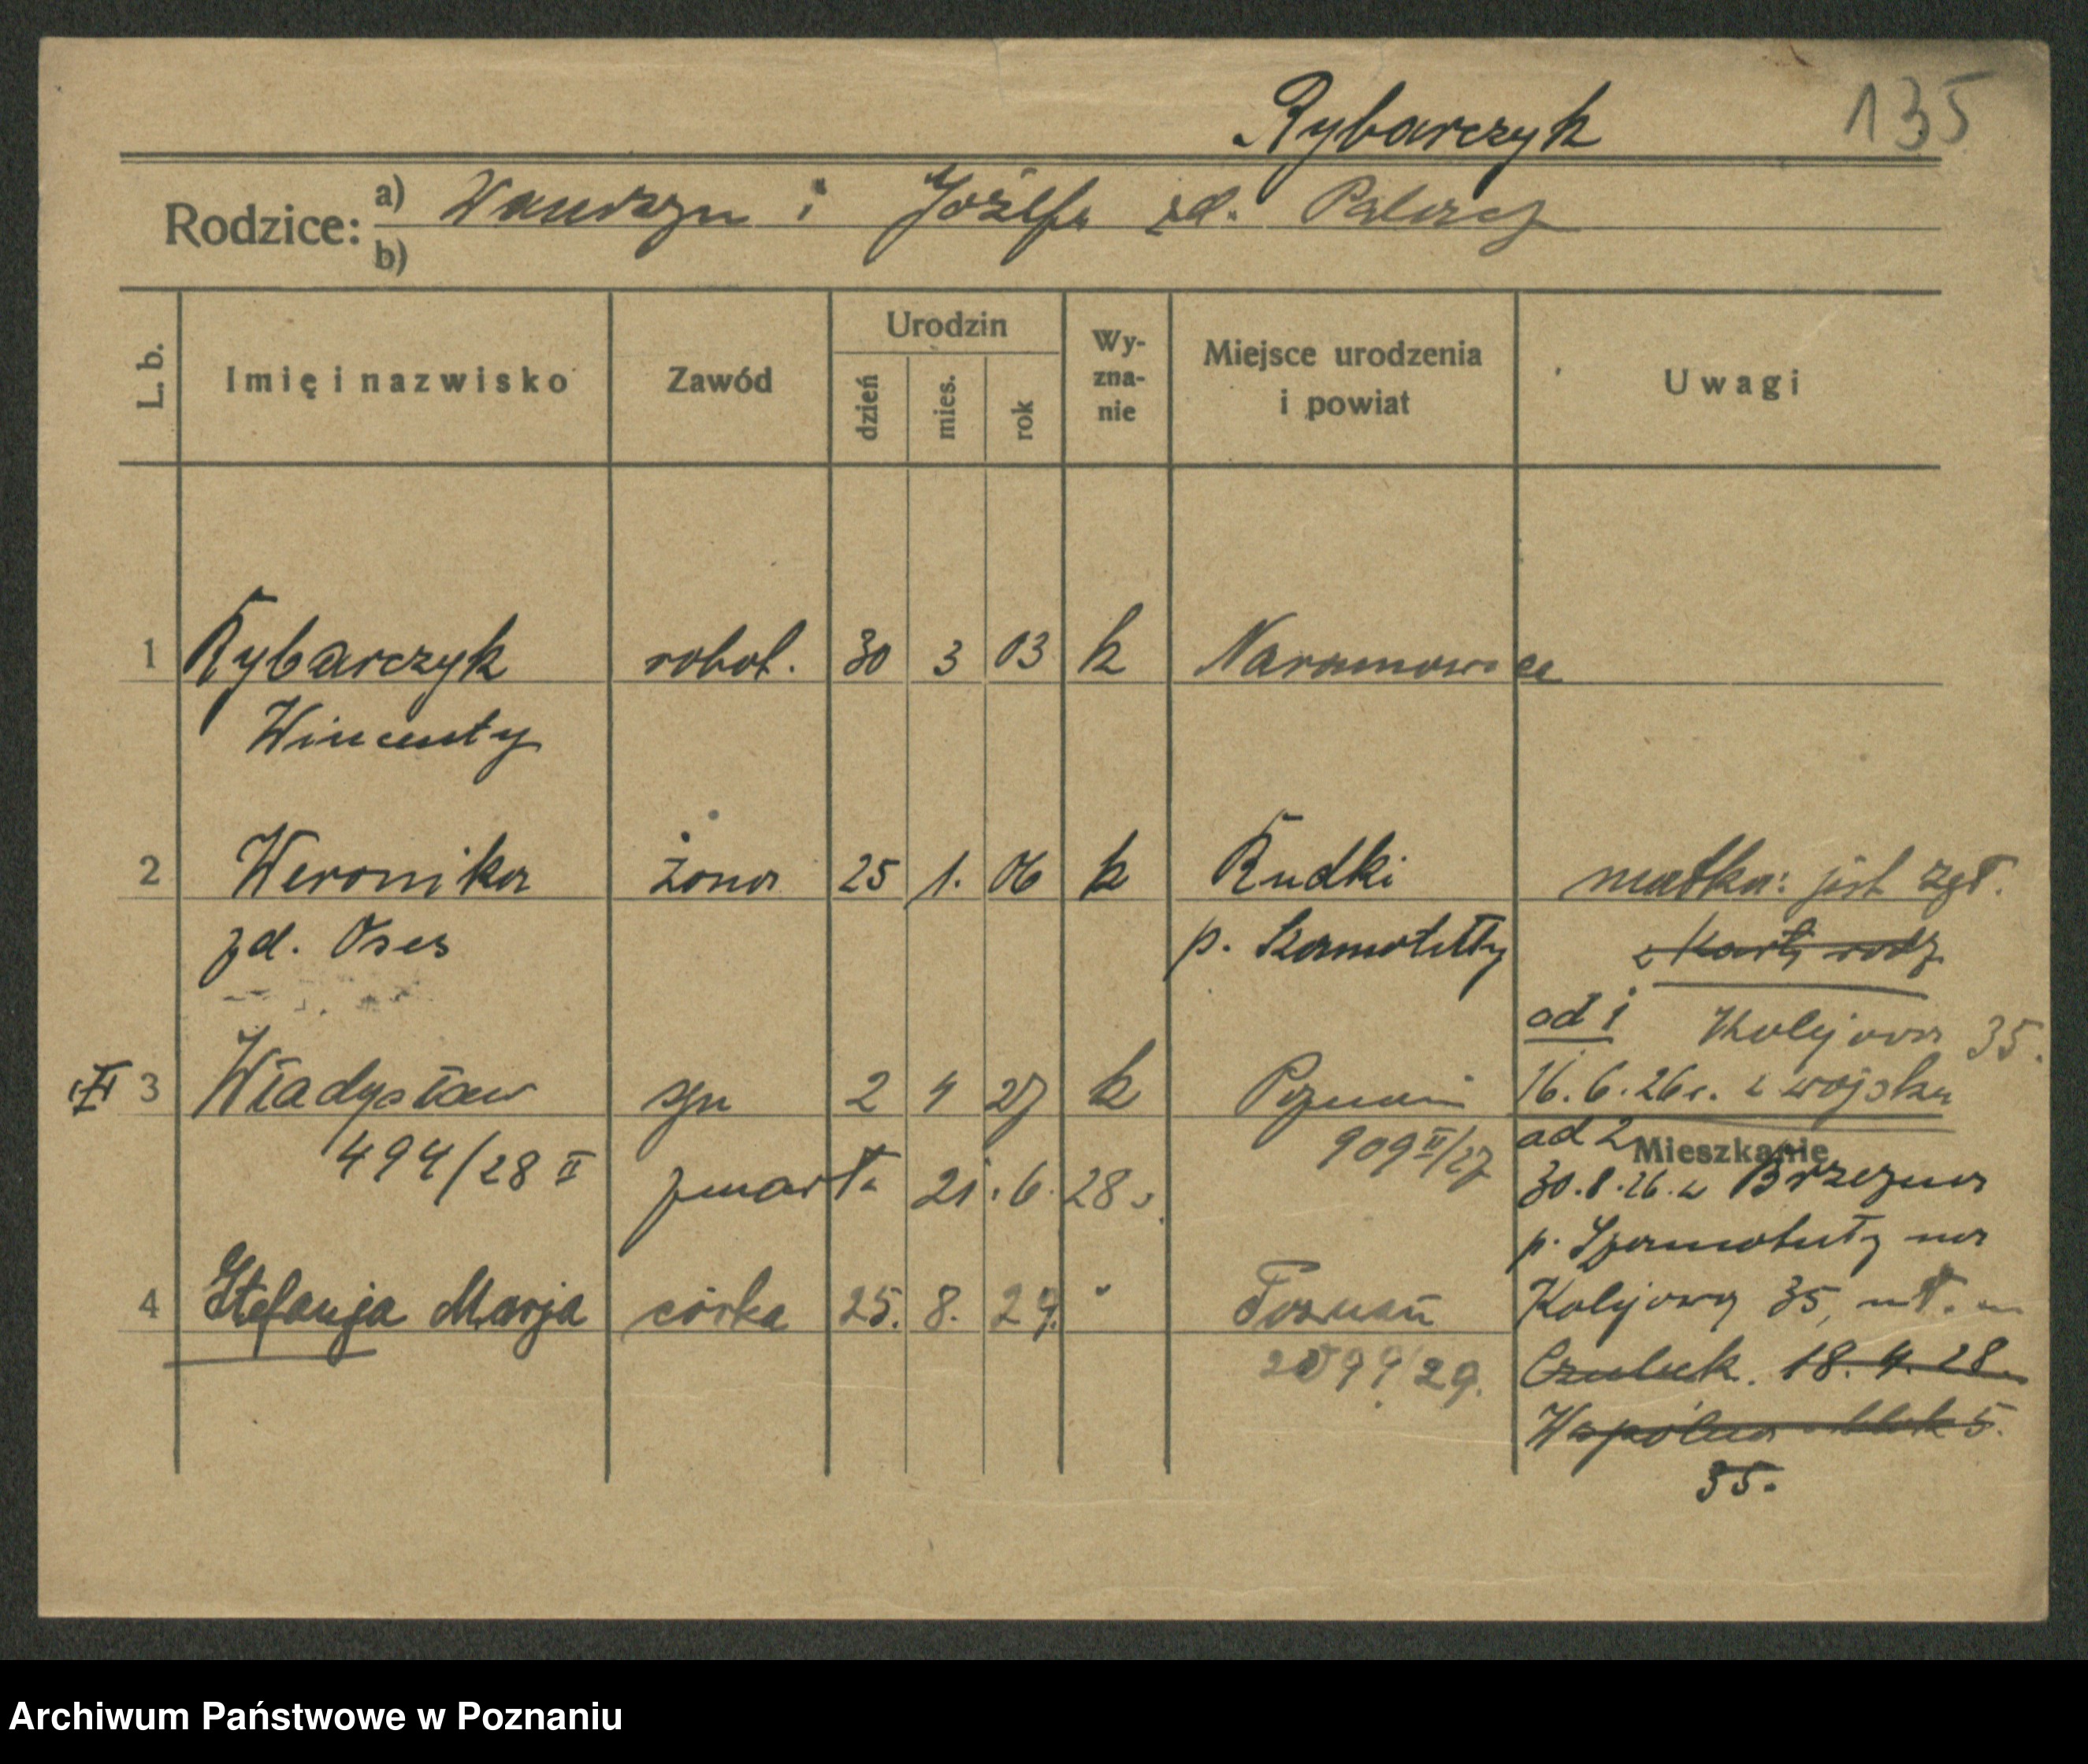 135
Rybarczyk
Rodzice: a) Wawrzyn i Józefa zd. Palacz
b)
L. b. Imię i nazwisko Zawód Urodzin dzień mies. rok Wyznanie Miejsce urodzenia i powiat Uwagi
1 Rybarczyk robot. 30 3 03 k Naramowice
Wincenty
2 Weronika żona 25 1. 06 k Rudki matka: jest zgł.
zd. Oses p. Szamotuły z Karty rodz.
ad 1 Kolejowa 35.
3 Władysław syn 2 4 27 k Poznań 16.6.26 r. z wojska
494/28 II 909 II/27 ad 2 Mieszkanie
zmarł 21.6.28 30.8.26. z Brzezna
p. Szamotuły na
4 Stefanja Marja córka 25. 8. 29. " Poznań Kolejową 35,
2099/29. 18.4.28
Wspólna blok 5.
35.
Archiwum Państwowe w Poznaniu